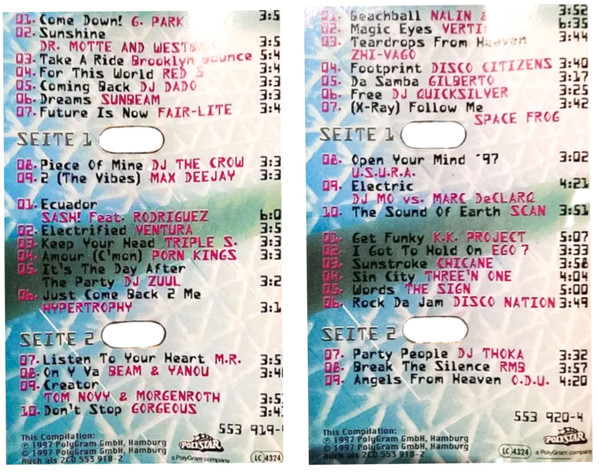 01. Come Down! G. PARK 3:5
02. Sunshine
DR. MOTTE AND WESTBAM 3:5
03. Take A Ride Brooklyn Bounce 5:4
04. For This World RED 5 3:4
05. Coming Back DJ DADO 3:3
06. Dreams SUNBEAM 3:3
07. Future Is Now FAIR-LITE 3:4
SEITE 1
08. Piece Of Mine DJ THE CROW 3:3
09. 2 (The Vibes) MAX DEEJAY 3:3
01. Ecuador
SASH! Feat. RODRIGUEZ 6:0
02. Electrified VENTURA 3:5
03. Keep Your Head TRIPLE S. 3:3
04. Amour (C'mon) PORN KINGS 3:3
05. It's The Day After
The Party DJ ZUUL 3:2
06. Just Come Back 2 Me
HYPERTROPHY 3:1
SEITE 2
07. Listen To Your Heart M.R. 3:5
08. On Y Va BEAM & YANOU 3:4
09. Creator
TOM NOVY & MORGENROTH 3:5
10. Don't Stop GORGEOUS 3:4
553 919-
This Compilation:
℗ 1997 PolyGram GmbH, Hamburg
© 1997 PolyGram GmbH, Hamburg
Auch als 2CD 553 918-2
POLYSTAR
LC 4324
01. Beachball NALIN & 3:52
02. Magic Eyes VERTI 6:35
03. Teardrops From Heaven 3:44
ZHI-VAGO
04. Footprint DISCO CITIZENS 3:40
05. Da Samba GILBERTO 3:17
06. Free DJ QUICKSILVER 3:25
07. (X-Ray) Follow Me 3:42
SPACE FROG
SEITE 1
08. Open Your Mind '97 3:02
U.S.U.R.A.
09. Electric 4:21
DJ MO vs. MARC DeCLARQ
10. The Sound Of Earth SCAN 3:51
01. Get Funky K.K. PROJECT 5:07
02. I Got To Hold On EGO 7 3:33
03. Sunstroke CHICANE 3:58
04. Sin City THREE'N ONE 4:04
05. Words THE SIGN 5:00
06. Rock Da Jam DISCO NATION 3:49
SEITE 2
07. Party People DJ THOKA 3:32
08. Break The Silence RMB 3:57
09. Angels From Heaven O.D.U. 4:20
553 920-4
This Compilation:
℗ 1997 PolyGram GmbH, Hamburg
© 1997 PolyGram GmbH, Hamburg
Auch als 2CD 553 918-2
POLYSTAR
a PolyGram company
LC 4324